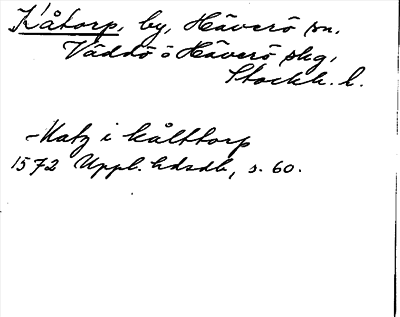 Kåtorp, by, Häverö sn,
Väddö o Häverö skg,
Stockh. l.
-Matz i kålttorp
1572 Uppl. hdsdb, s. 60.